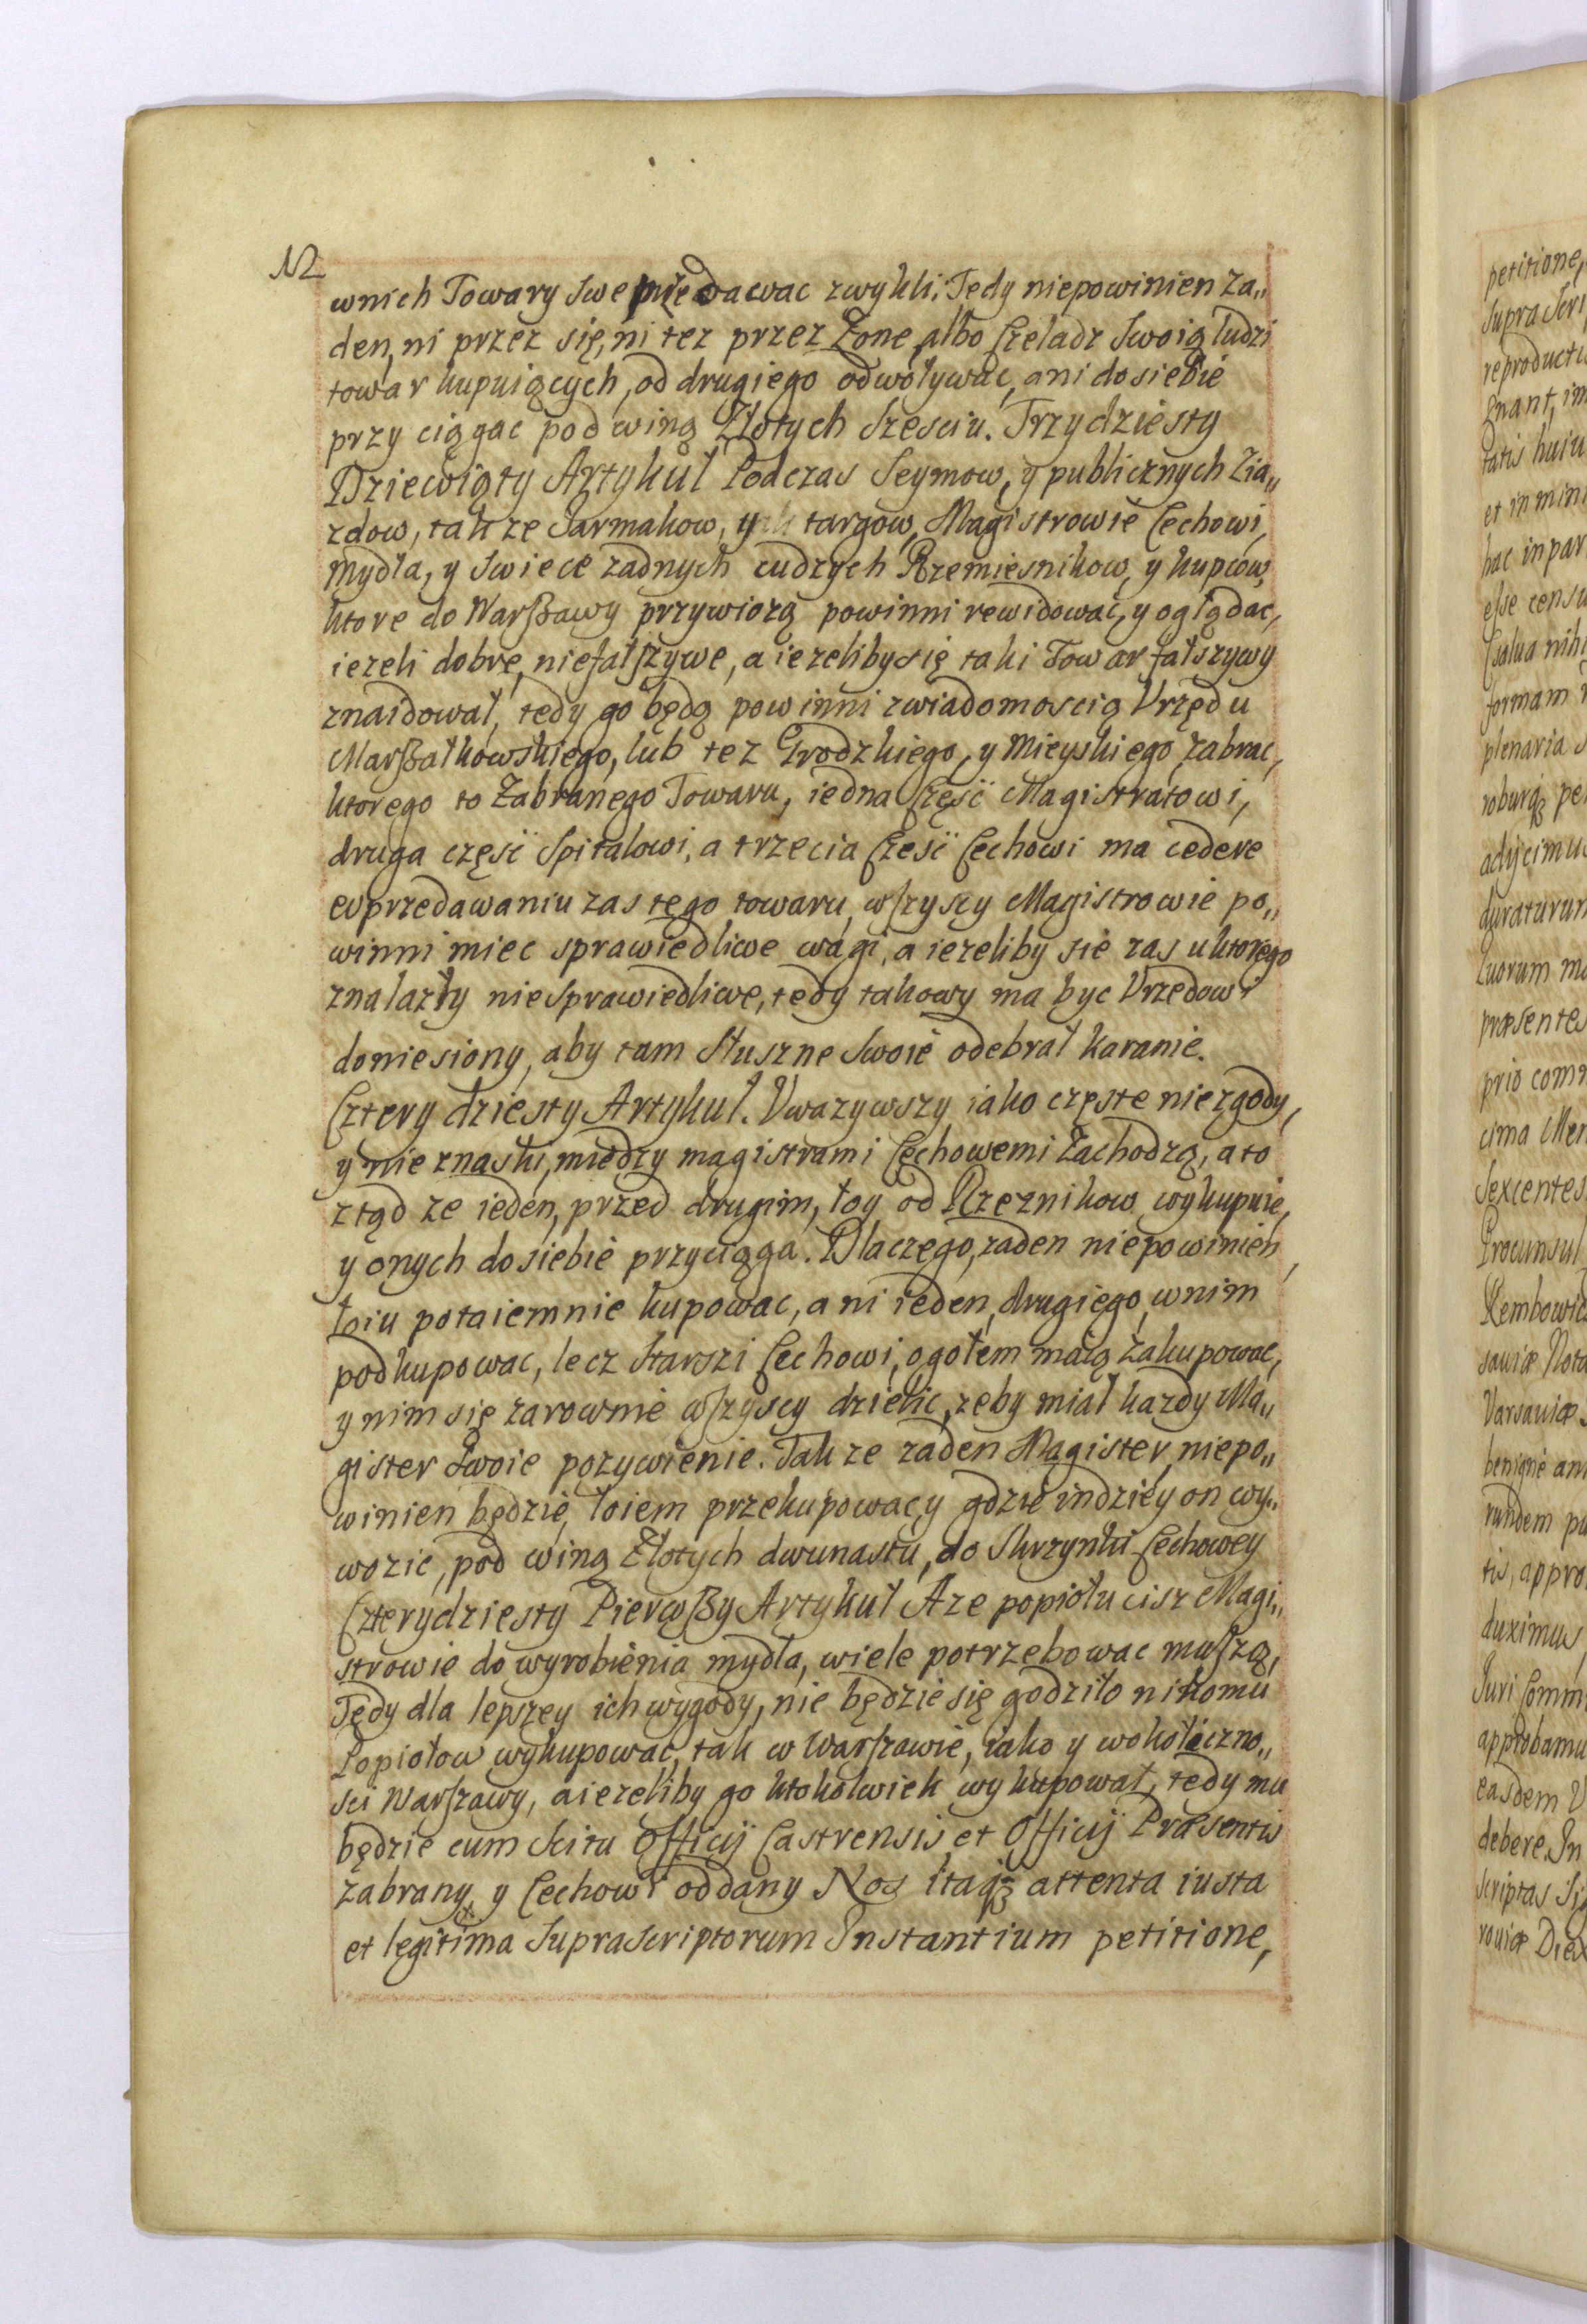 12
wnich Towary Swe przedawac zwykli, Tedy niepowinien za„
den, ni przez się, ni tez przez Zone, albo Czeladz Swoią ludzi
towar kupuiących, od drugiego odwoływac, ani do siebie
przy ciągac pod winą Złotych Szesciu. Trzydziesty
Dziewiąty Artykuł Podczas Seymow, y publicznych Zia„
zdow, tak ze Jarmakow, y targow, Magistrowie Cechowi,
Mydła, y Swiece zadnych cudzych Rzemiesnikow, y kupcow,
ktore do Warßawy przywiozą powinni rewidowac, y oglądac,
iezeli dobre, niefałszywe, a iezeliby się taki Towar fałszywy
znaidował, tedy go będą powinni zwiadomoscią Vrzędu
Marßałkowskiego, lub tez Grodzkiego, y Mieyskiego, zabrac,
ktorego to Zabranego Towaru, iedna Częsć Magistratowi,
druga częsć Spitalowi, a trzecia Czesć Cechowi ma cedere
wprzedawaniu zas tego towaru, wszyscy Magistrowie po„
winni miec sprawiedliwe wagi, a iezeliby sie zas uktorego
znalazły niesprawiedliwe, tedy takowy ma byc Vrzedowi
doniesiony, aby tam Słuszne Swoie odebrał karanie.
Cztery dziesty Artykuł. Vwazywszy iako częste niezgody,
y nie znaski, miedzy magistrami Cechowemi Zachodzą, a to
ztąd ze ieden, przed drugim, łoy od Rzeznikow wykupuie,
y onych do siebie przyciąga. Dlaczego, zaden niepowinien,
łoiu potaiemnie kupowac, ani ieden, drugiego, wnim
podkupowac, lecz Starszi Cechowi, ogołem maią Zakupowac,
y nim się zarownie wszyscy dzielic, zeby miał kazdy Ma„
gister Swoie pozywienie. Tak ze zaden Magister, niepo„
winien będzie, łoiem przekupowac, y gdzie indziey on wy„
wozic, pod winą Złotych dwunastu, do Skrzynki Cechowey
Czterydziesty Pierwßy Artykuł Aze popiołu cisz Magi„
strowie do wyrobienia mydła, wiele potrzebowac muszą,
Tędy dla lepszey ich wygody, nie będzie się godziło nikomu
Popiołow wykupowac, tak w Warszawie, iako y wokoliczno„
sci Warszawy, a iezeliby go ktokolwiek wykupował, tedy mu
będzie cum Scitu Officij Castrensis, et Officij Præsentis
zabrany, y Cechowi oddany Nos itaqȝ attenta iusta
et legitima SupraScriptorum Instantium petitione,